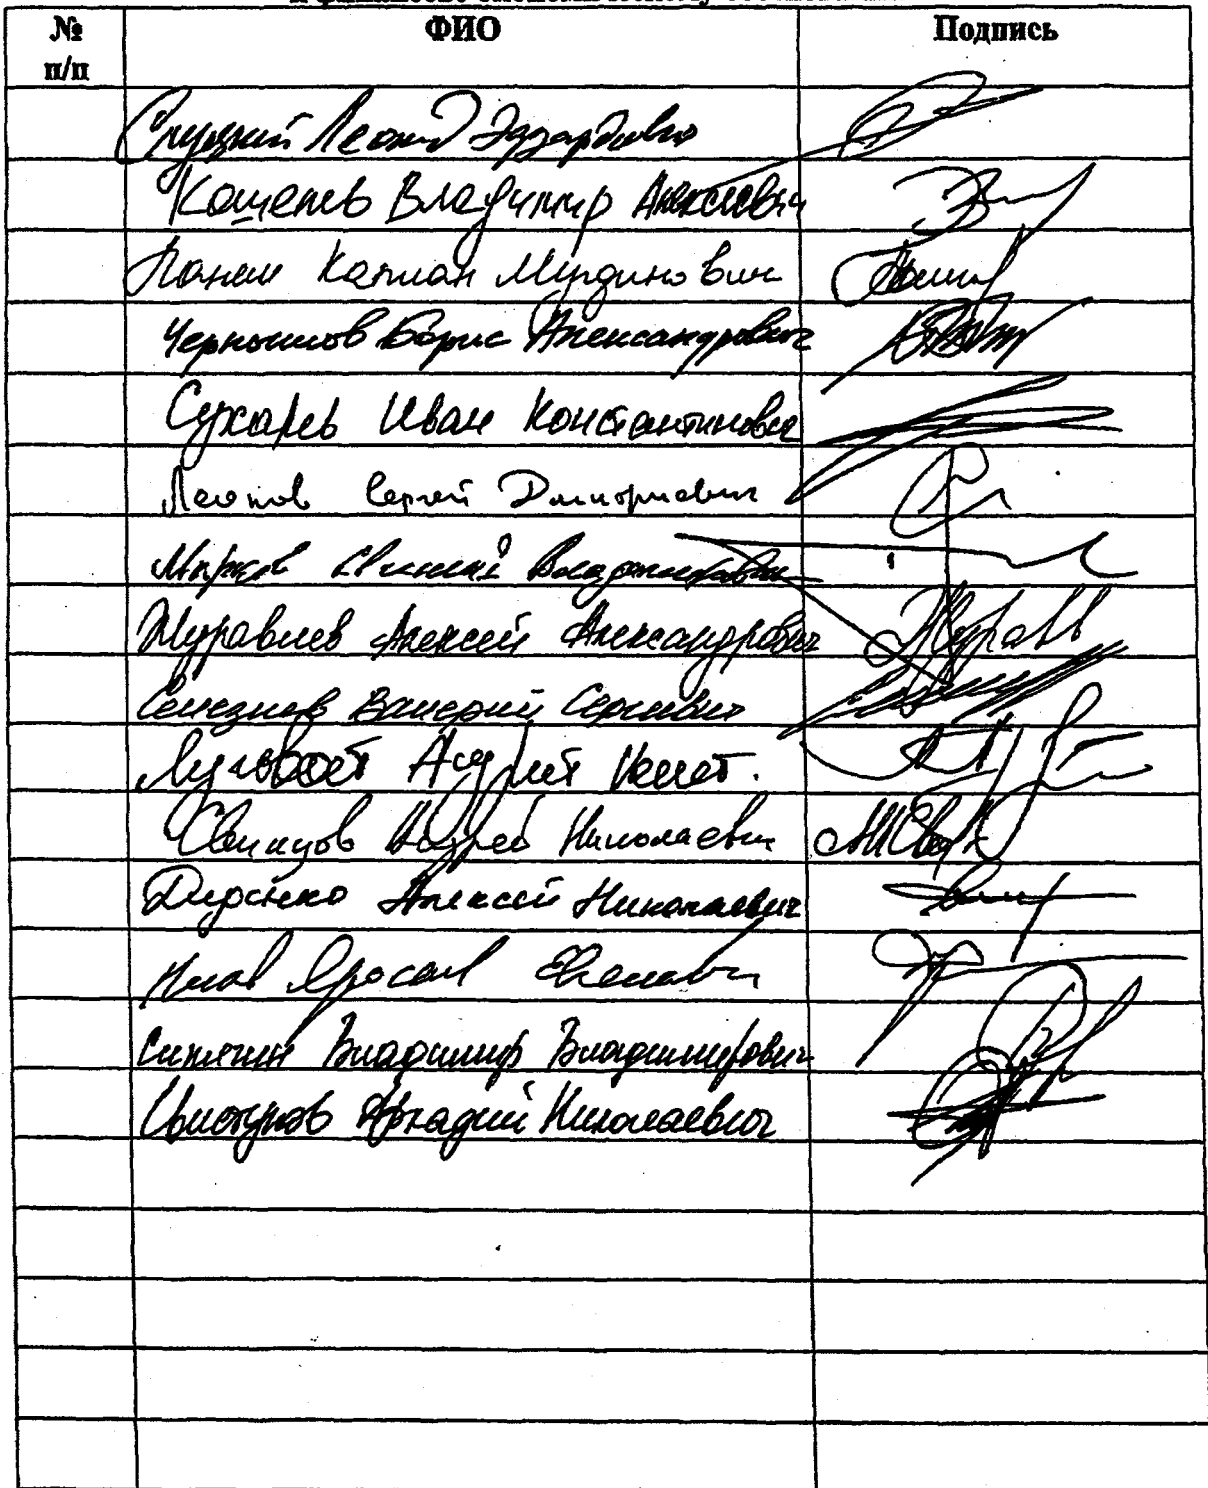 № п/п ФИО Подпись
Слуцкий Леонид Эдуардович
Кошелев Владимир Алексеевич
Панеш Каплан Мугдинович
Чернышов Борис Александрович
Сухарев Иван Константинович
Леонов Сергей Дмитриевич
Марков Евгений Владимирович
Журавлев Алексей Александрович Журавл
Селезнев Валерий Сергеевич
Луговой Андрей Конст.
Свинцов Андрей Николаевич
Диденко Алексей Николаевич
Нилов Ярослав Евгеньевич
Сипягин Владимир Владимирович
Свистунов Аркадий Николаевич